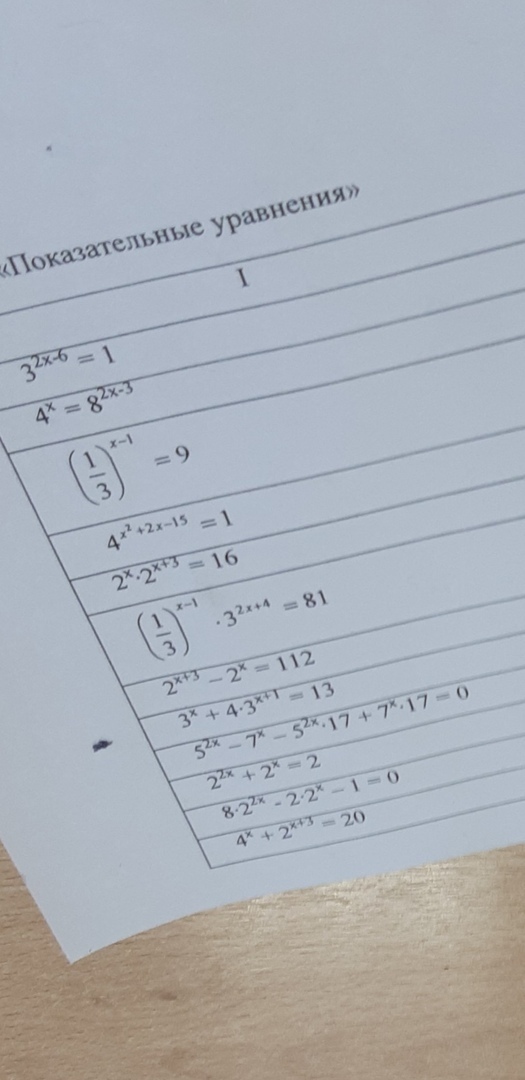 «Показательные уравнения»
I
3^{2x-6} = 1
4^x = 8^{2x-3}
(1/3)^{x-1} = 9
4^{x^2+2x-15} = 1
2^x·2^{x+3} = 16
(1/3)^{x-1} · 3^{2x+4} = 81
2^{x+3} − 2^x = 112
3^x + 4·3^{x+1} = 13
5^{2x} − 7^x − 5^{2x}·17 + 7^x·17 = 0
2^{2x} + 2^x = 2
8·2^{2x} - 2·2^x − 1 = 0
4^x + 2^{x+3} = 20